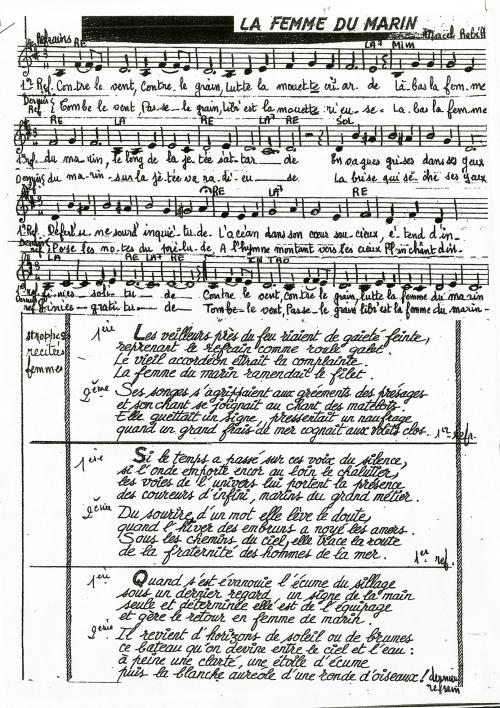 LA FEMME DU MARIN
Refrains RE LA7 Mim
1er Ref. Con-tre le vent, Contre le grain, Lutte la mouette
Là-bas la fem-me
Dernier Ref Tombe le vent, Pas-se le grain, est la mouette
La-bas la fem-me
RE LA RE LA7 RE SOL
1er ref. du ma-rin, le long de la je-tée de En vagues gri-ses dans ses yeux
Dernier du ma-rin sur la je-tée se La brise qui sè-che ses yeux
RE LA7 RE
1er Ref. u-ne sourd' inquié-tu-de. L'océan dans son cœur sou-cieux, é-tend d'in-
Dernier ref. Pose les no-tes du pré-lu-de, A l'hymne montant vers les cieux
LA RE LA7 RE INTRO
1er ref. fi-nies soli-tu-de Contre le vent, con-tre le grain, lutte la femme du ma-rin
Dernier ref grati-tu-de Tom-be le vent, Passe le grain est la femme du marin
strophes
récitées
femmes
1ère Les veilleurs près du feu riaient de gaieté feinte,
reprenant le refrain comme roule galet.
Le vieil accordéon étrait la complainte
La femme du marin ramendait le filet.
2ème Ses songes s'agrippaient aux gréements des présages
et son chant se joignait au chant des matelots.
Elle guettait un signe, pressentait un naufrage
quand un grand frais de mer cognait aux volets clos. 1er refr.
1ère Si le temps a passé sur ces voix du silence,
si l'onde emporte encor au loin le chalutier,
les voies de l'univers lui portent la présence
des coureurs d'infini, marins du grand métier.
2ème Du sourire, d'un mot elle lève le doute,
quand l'hiver des embruns a noyé les amers.
Sous les chemins du ciel, elle trace la route
de la fraternité des hommes de la mer.
1er ref.
1ère Quand s'est évanouie l'écume du sillage
sous un dernier regard, un signe de la main
seule et déterminée elle est de l'équipage
et gère le retour en femme de marin.
2ème Il revient d'horizons de soleil ou de brumes
ce bateau qu'on devine entre le ciel et l'eau :
à peine une clarté, une étoile d'écume
puis la blanche auréole d'une ronde d'oiseaux ! dernier
refrain